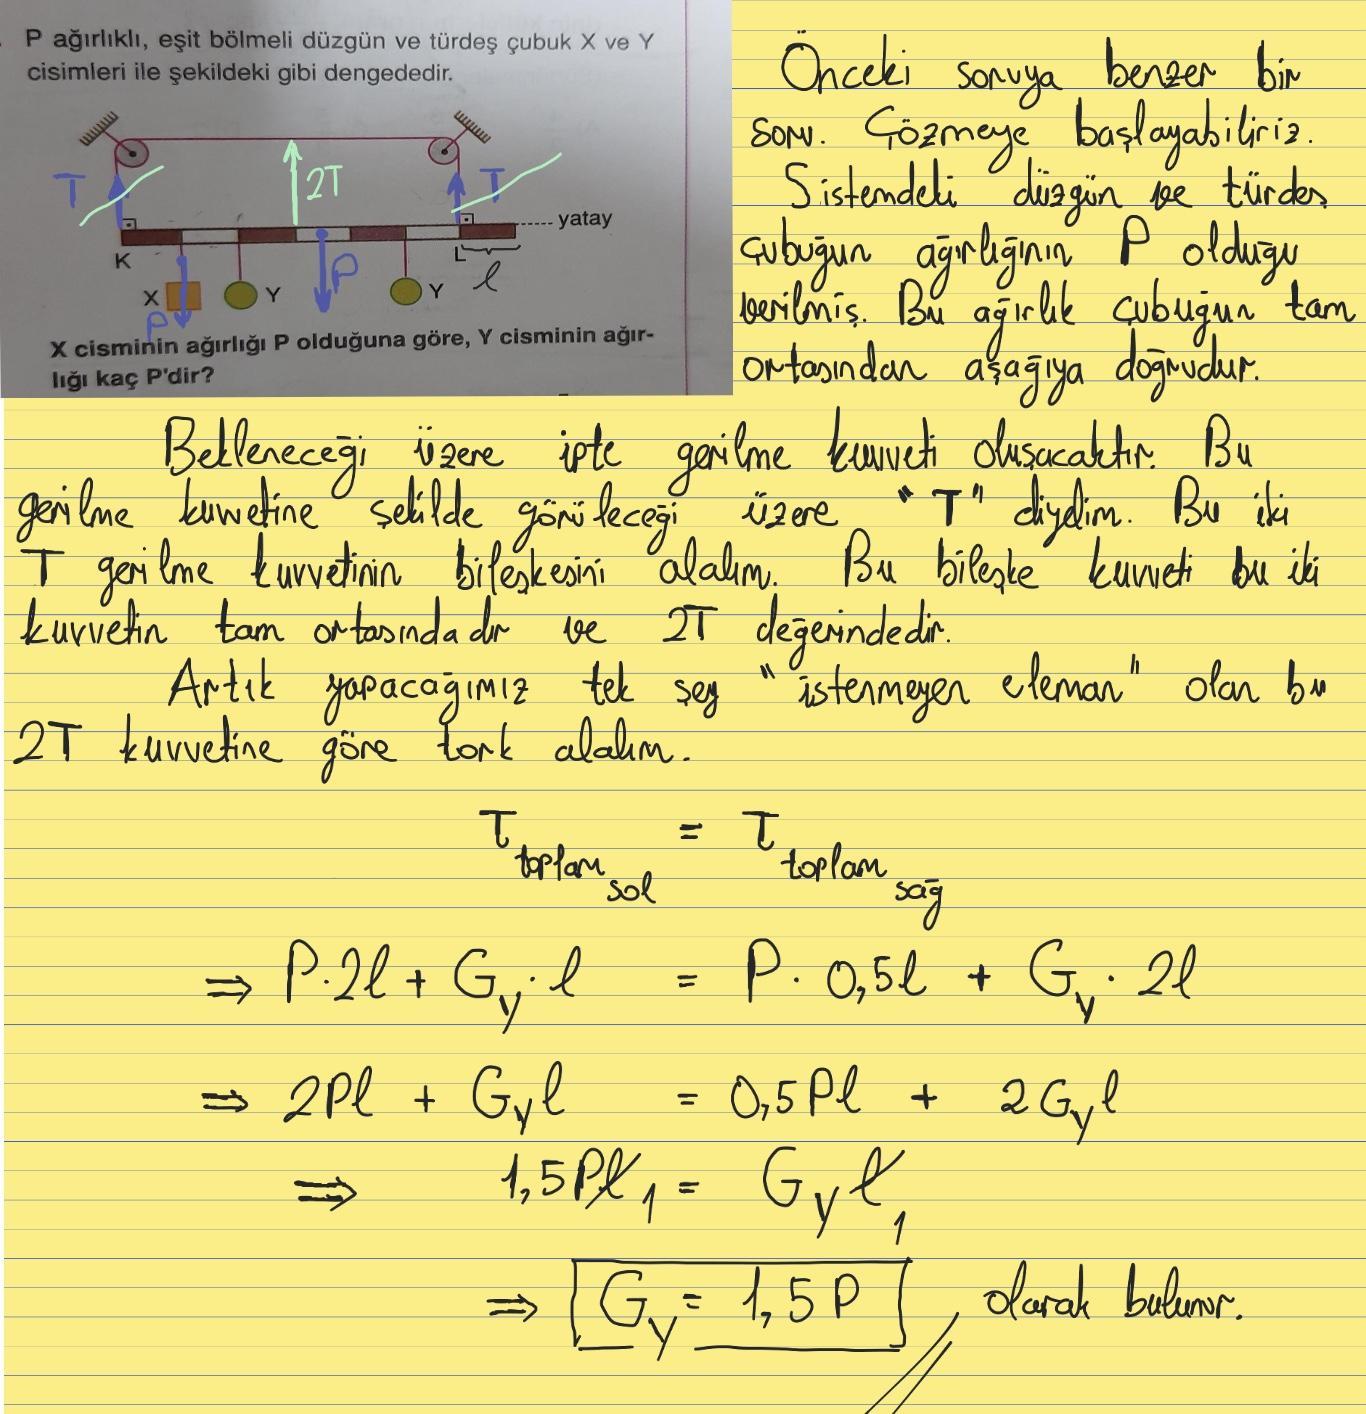 P ağırlıklı, eşit bölmeli düzgün ve türdeş çubuk X ve Y
cisimleri ile şekildeki gibi dengededir.
T
2T
T
yatay
K
L
l
X
Y
P
Y
P
X cisminin ağırlığı P olduğuna göre, Y cisminin ağır-
lığı kaç P'dir?
Önceki soruya benzer bir
soru. Çözmeye başlayabiliriz.
Sistemdeki düzgün ve türdeş
çubuğun ağırlığının P olduğu
verilmiş. Bu ağırlık çubuğun tam
ortasından aşağıya doğrudur.
Bekleneceği üzere ipte gerilme kuvveti oluşacaktır. Bu
gerilme kuvvetine şekilde görüleceği üzere "T" diydim. Bu iki
T gerilme kuvvetinin bileşkesini alalım. Bu bileşke kuvveti bu iki
kuvvetin tam ortasındadır ve 2T değerindedir.
Artık yapacağımız tek şey "istenmeyen eleman" olan bu
2T kuvvetine göre tork alalım.
τ toplam sol = τ toplam sağ
⇒ P·2l + Gy·l = P·0,5l + Gy·2l
⇒ 2Pl + Gyl = 0,5Pl + 2Gyl
⇒ 1,5Pl 1 = Gyl 1
⇒ Gy = 1,5P olarak bulunur.